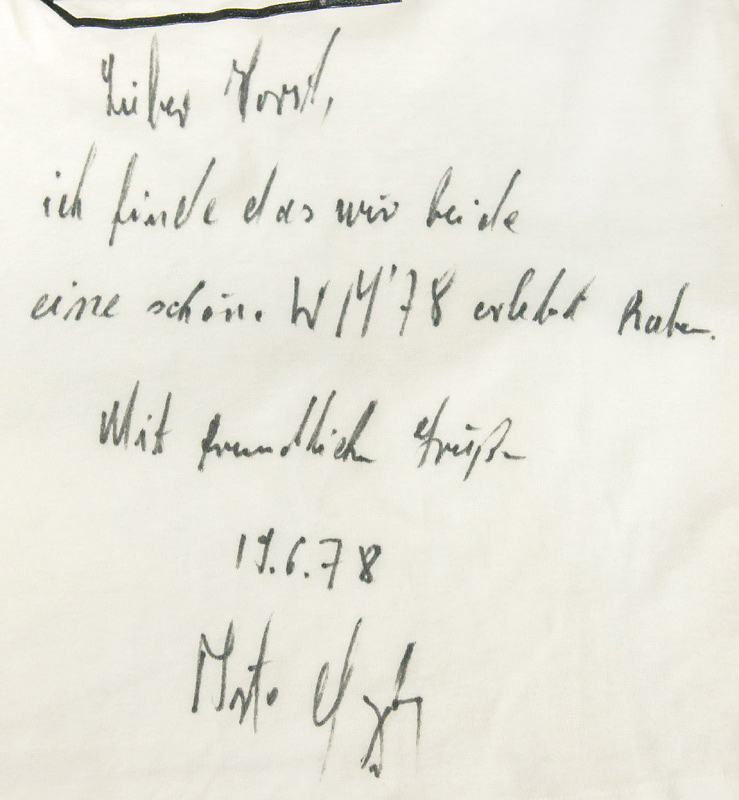 Lieber Horst,
ich finde das wir beide
eine schöne WM'78 erlebt haben.
Mit freundlichen Grüßen
19.6.78